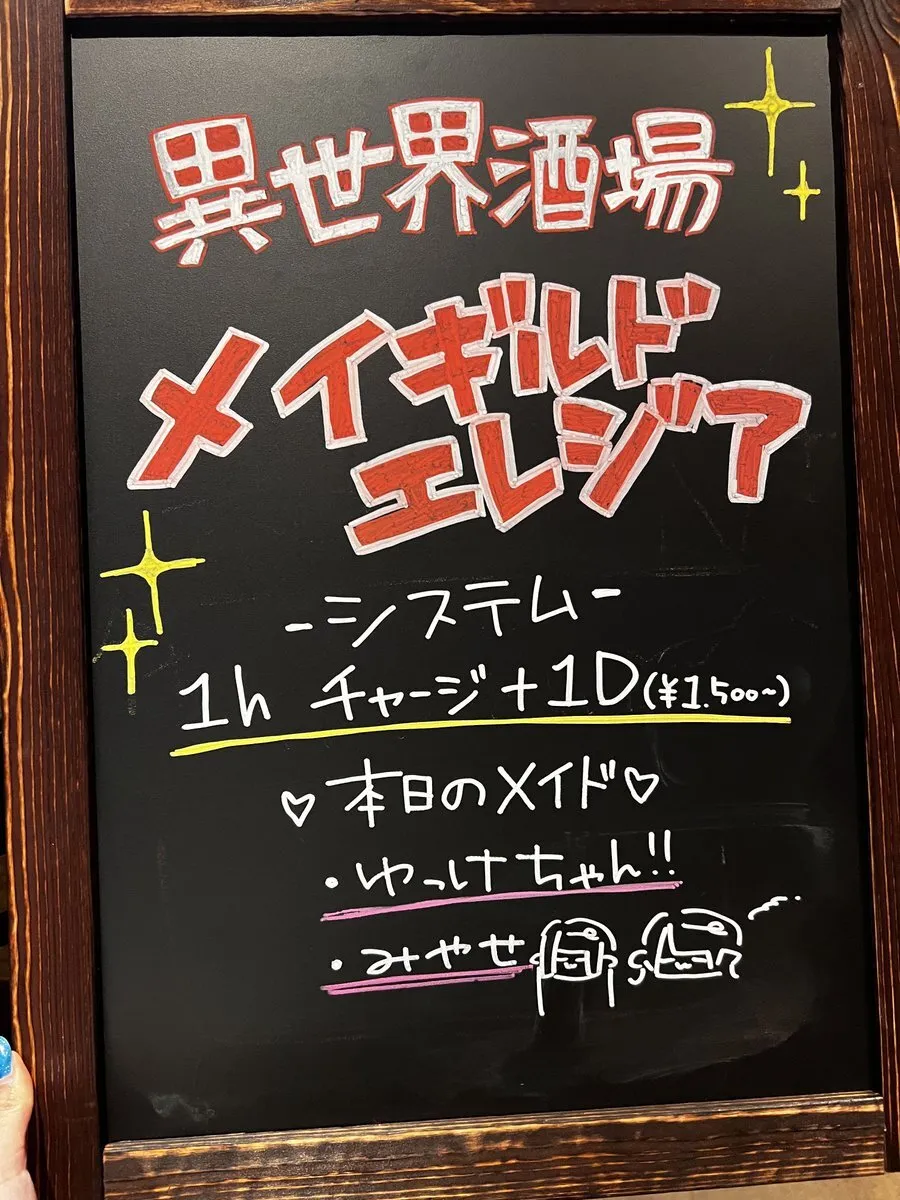 異世界酒場
メイギルド
エレジア
-システム-
1h チャージ+1D(¥1.500~)
♡本日のメイド♡
・ゆっけちゃん!!
・みやせ